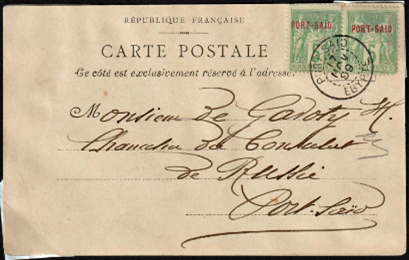 RÉPUBLIQUE FRANÇAISE
PORT-SAID PORT-SAID
CARTE POSTALE
PORT-SAID
17
NOV
99
EGYPTE
Ce côté est exclusivement réservé à l'adresse.
Monsieur de Gadoty H.
Chancelier du Consulat
de Russie
Port-Saïd